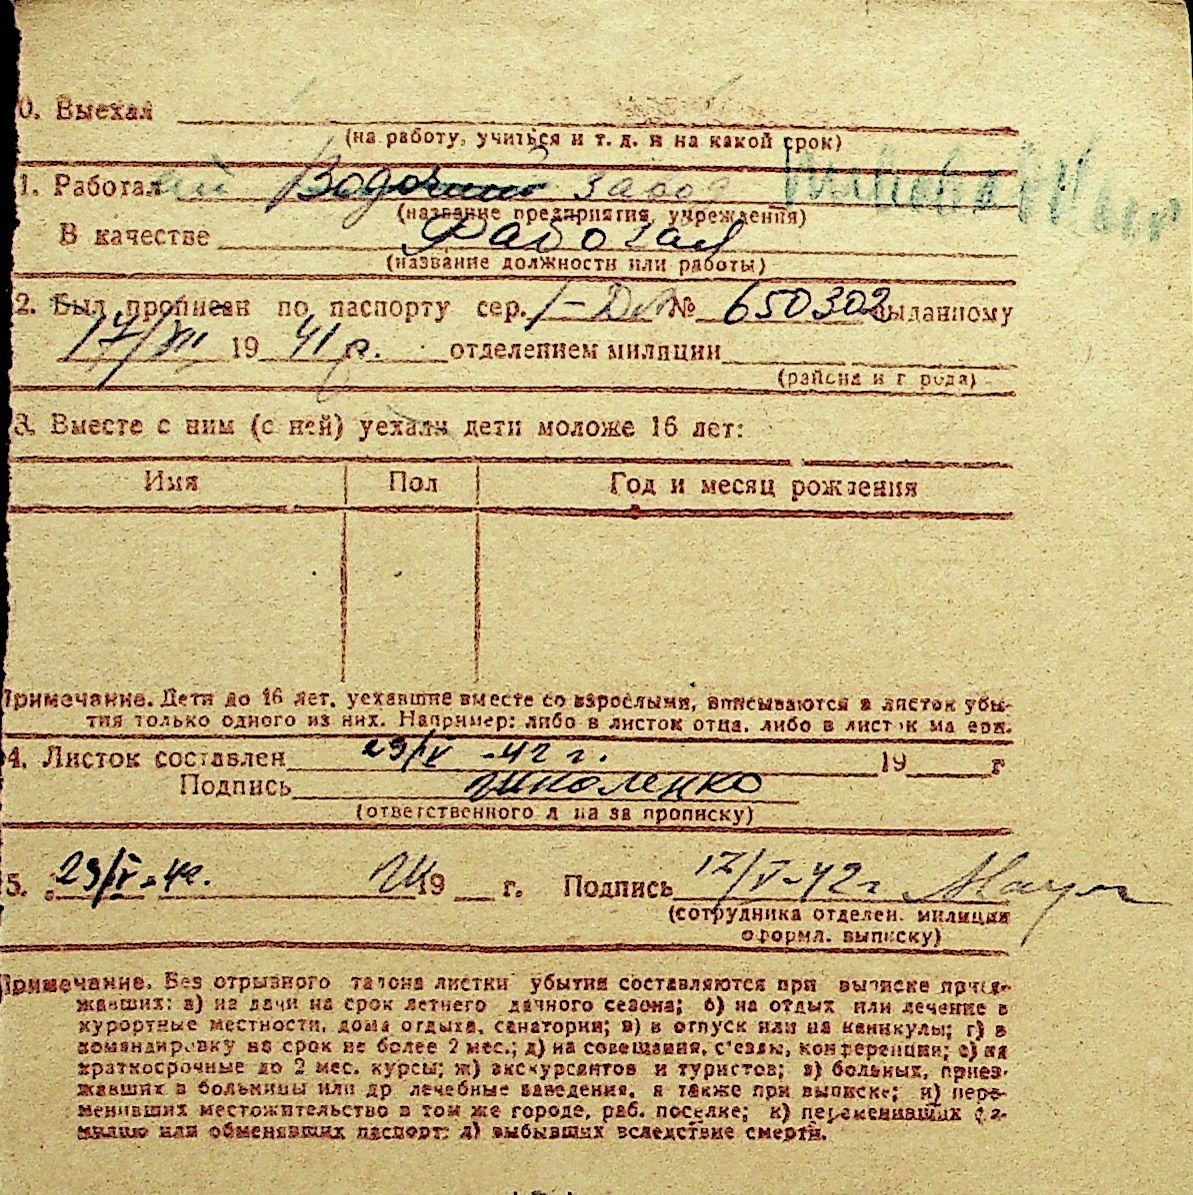 0. Выехал
(на работу, учиться и т. д. и на какой срок)
1. Работал завод
(название предприятия, учреждения)
В качестве Рабочая
(название должности или работы)
2. Был прописан по паспорту сер. № 650302 выданному
17/VII 1941 г. отделением милиции
(района и города)
3. Вместе с ним (с ней) уехали дети моложе 16 лет:
Имя Пол Год и месяц рождения
Примечание. Дети до 16 лет, уехавшие вместе со взрослыми, вписываются в листок убы-
тия только одного из них. Например: либо в листок отца, либо в листок матери.
4. Листок составлен 29/IV -42 г. 19 г
Подпись
(ответственного лица за прописку)
5. 29/IV-42. 19 г. Подпись 17/V-42 г
(сотрудника отделен. милиции
оформл. выписку)
Примечание. Без отрывного талона листки убытия составляются при выписке приез-
жавших: а) на дачи на срок летнего дачного сезона; б) на отдых или лечение в
курортные местности, дома отдыха, санатории; в) в отпуск или на каникулы; г) в
командировку на срок не более 2 мес.; д) на совещания, с'езды, конференции; е) на
краткосрочные до 2 мес. курсы; ж) экскурсантов и туристов; з) больных, приез-
жавших в больницы или др лечебные заведения, а также при выписке; и) пере-
менивших местожительство в том же городе, раб. поселке; к) переменивших фа-
милию или обменявших паспорт; л) выбывших вследствие смерти.